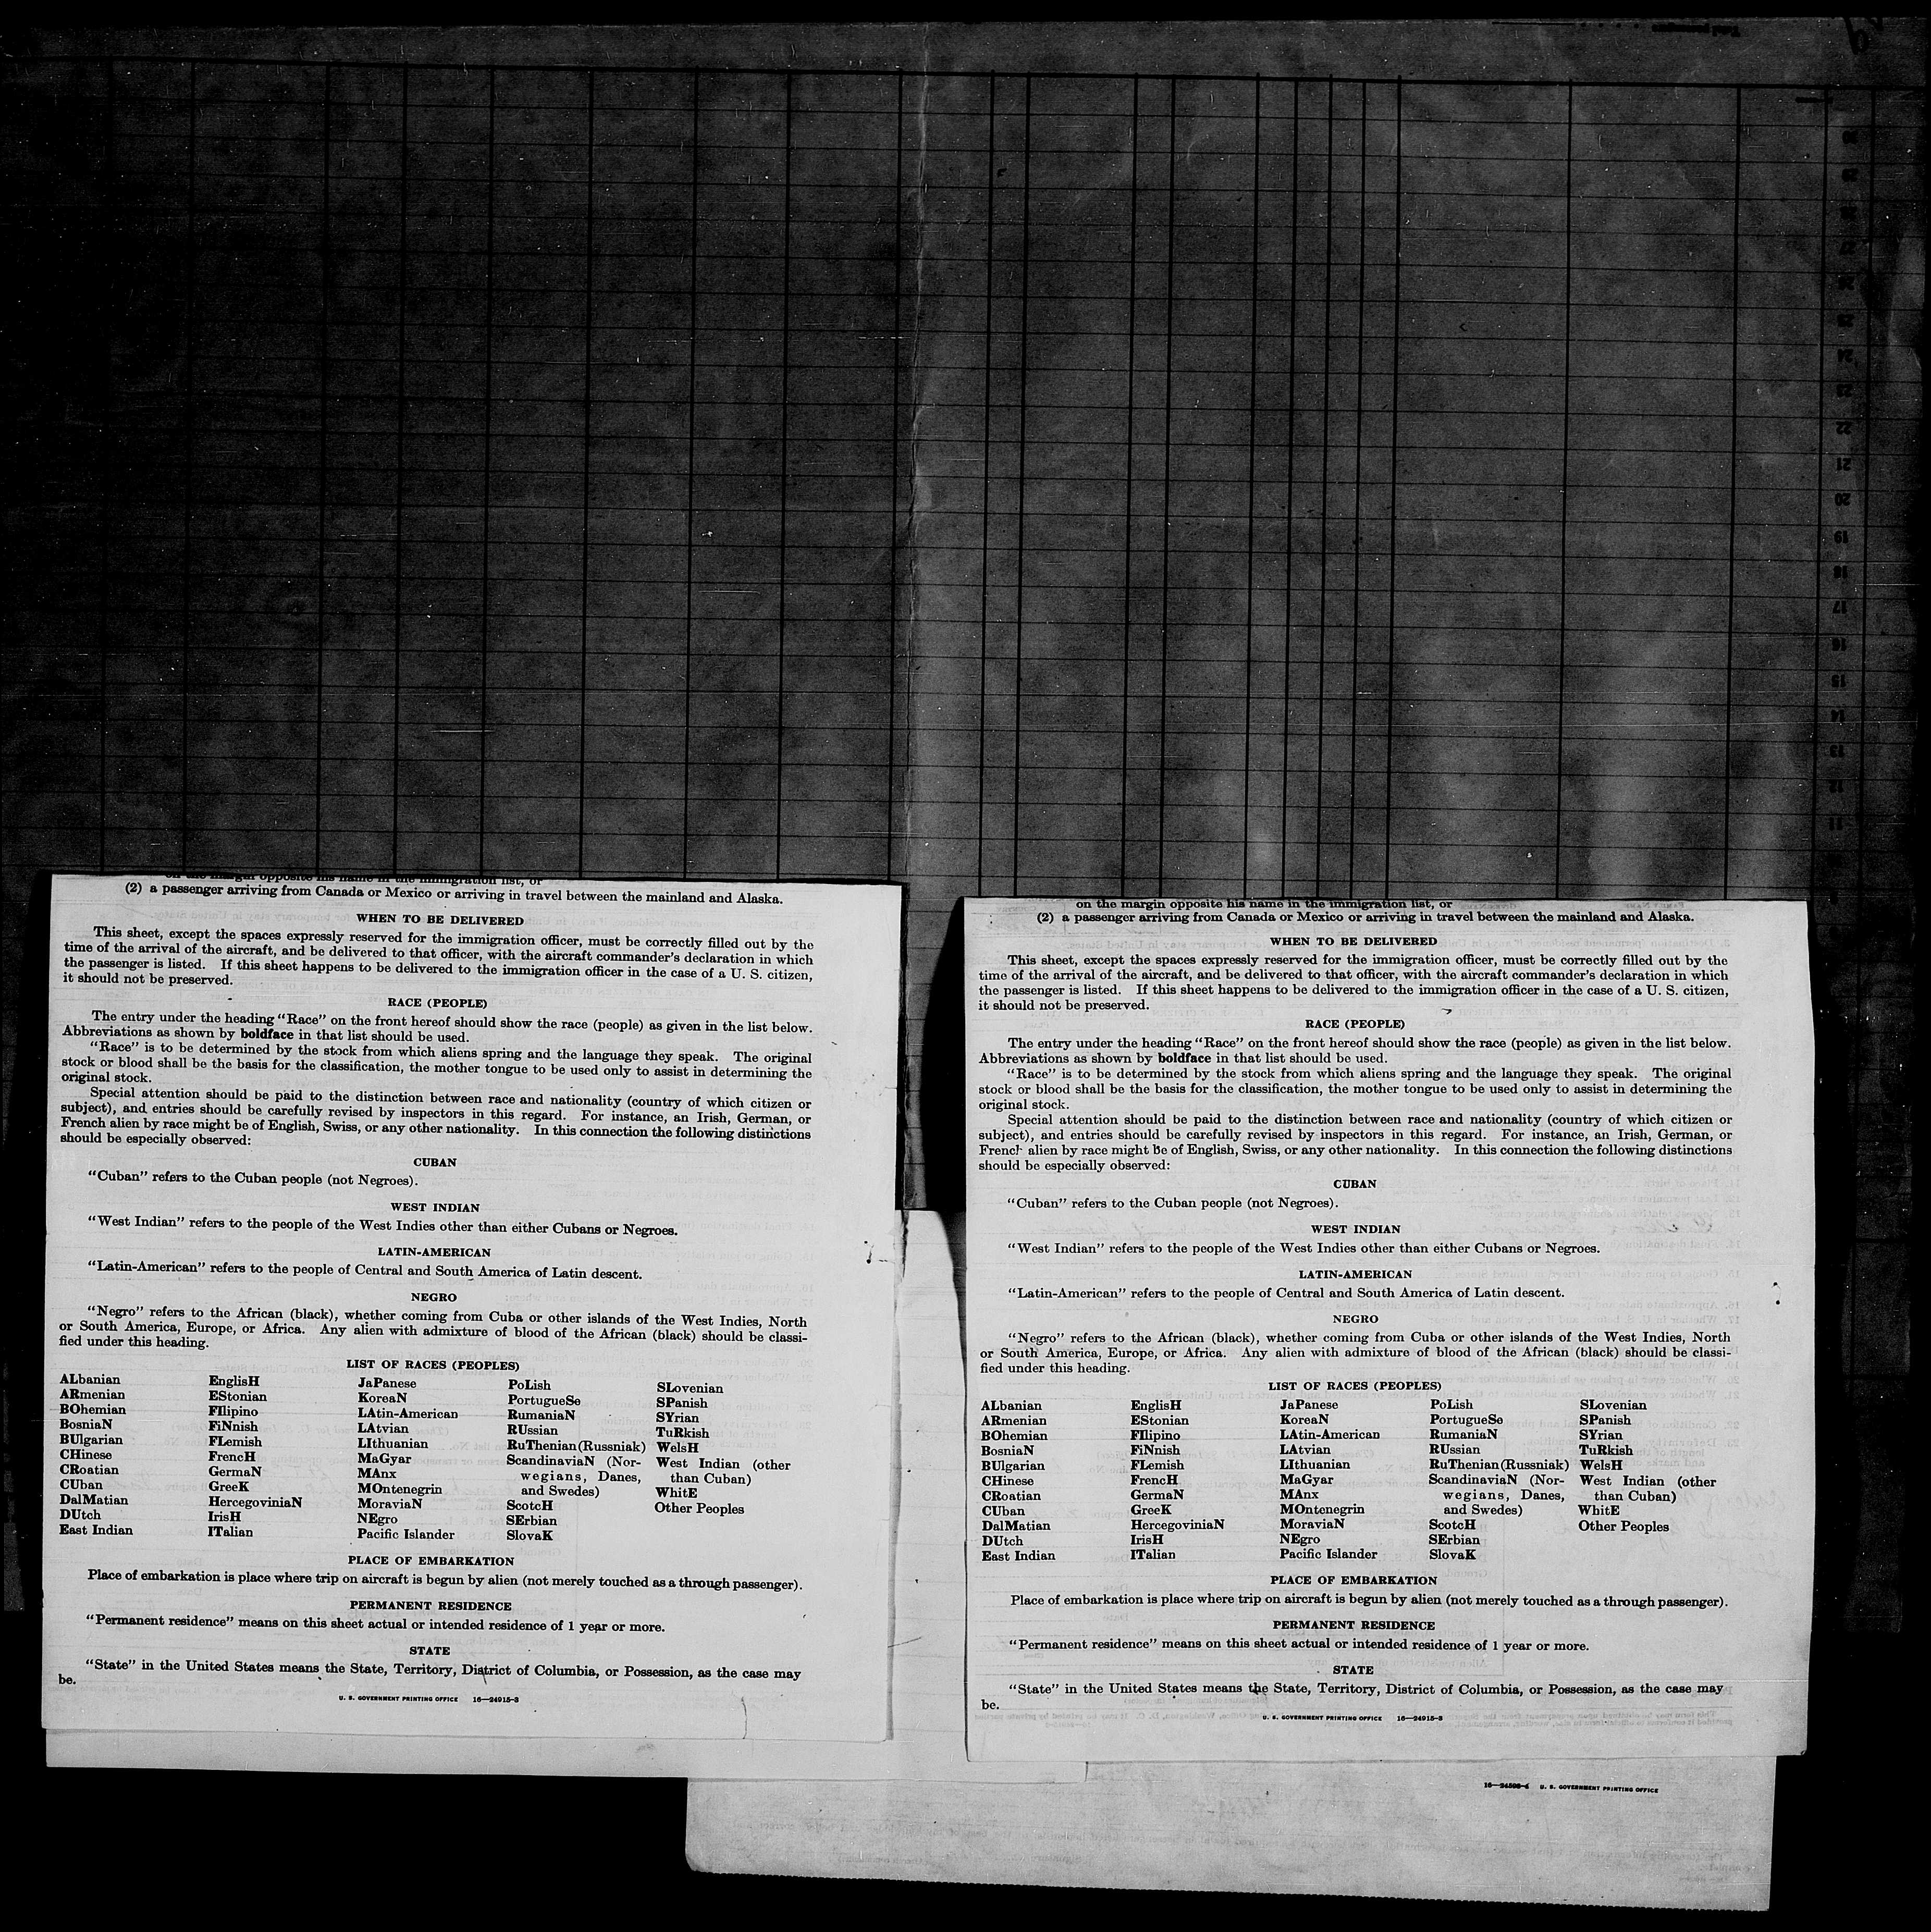 on the margin opposite his name in the immigration list, or
(2) a passenger arriving from Canada or Mexico or arriving in travel between the mainland and Alaska.
WHEN TO BE DELIVERED
This sheet, except the spaces expressly reserved for the immigration officer, must be correctly filled out by the
time of the arrival of the aircraft, and be delivered to that officer, with the aircraft commander's declaration in which
the passenger is listed. If this sheet happens to be delivered to the immigration officer in the case of a U. S. citizen,
it should not be preserved.
RACE (PEOPLE)
The entry under the heading "Race" on the front hereof should show the race (people) as given in the list below.
Abbreviations as shown by boldface in that list should be used.
"Race" is to be determined by the stock from which aliens spring and the language they speak. The original
stock or blood shall be the basis for the classification, the mother tongue to be used only to assist in determining the
original stock.
Special attention should be paid to the distinction between race and nationality (country of which citizen or
subject), and entries should be carefully revised by inspectors in this regard. For instance, an Irish, German, or
French alien by race might be of English, Swiss, or any other nationality. In this connection the following distinctions
should be especially observed:
CUBAN
"Cuban" refers to the Cuban people (not Negroes).
WEST INDIAN
"West Indian" refers to the people of the West Indies other than either Cubans or Negroes.
LATIN-AMERICAN
"Latin-American" refers to the people of Central and South America of Latin descent.
NEGRO
"Negro" refers to the African (black), whether coming from Cuba or other islands of the West Indies, North
or South America, Europe, or Africa. Any alien with admixture of blood of the African (black) should be classi-
fied under this heading.
LIST OF RACES (PEOPLES)
ALbanian
ARmenian
BOhemian
BosniaN
BUlgarian
CHinese
CRoatian
CUban
DalMatian
DUtch
East Indian
EnglisH
EStonian
FIlipino
FiNnish
FLemish
FrencH
GermaN
GreeK
HercegoviniaN
IrisH
ITalian
JaPanese
KoreaN
LAtin-American
LAtvian
LIthuanian
MaGyar
MAnx
MOntenegrin
MoraviaN
NEgro
Pacific Islander
PoLish
PortugueSe
RumaniaN
RUssian
RuThenian (Russniak)
ScandinaviaN (Nor-
wegians, Danes,
and Swedes)
ScotcH
SErbian
SlovaK
SLovenian
SPanish
SYrian
TuRkish
WelsH
West Indian (other
than Cuban)
WhitE
Other Peoples
PLACE OF EMBARKATION
Place of embarkation is place where trip on aircraft is begun by alien (not merely touched as a through passenger).
PERMANENT RESIDENCE
"Permanent residence" means on this sheet actual or intended residence of 1 year or more.
STATE
"State" in the United States means the State, Territory, District of Columbia, or Possession, as the case may
be.
U. S. GOVERNMENT PRINTING OFFICE 16—24915-3
on the margin opposite his name in the immigration list, or
(2) a passenger arriving from Canada or Mexico or arriving in travel between the mainland and Alaska.
WHEN TO BE DELIVERED
This sheet, except the spaces expressly reserved for the immigration officer, must be correctly filled out by the
time of the arrival of the aircraft, and be delivered to that officer, with the aircraft commander's declaration in which
the passenger is listed. If this sheet happens to be delivered to the immigration officer in the case of a U. S. citizen,
it should not be preserved.
RACE (PEOPLE)
The entry under the heading "Race" on the front hereof should show the race (people) as given in the list below.
Abbreviations as shown by boldface in that list should be used.
"Race" is to be determined by the stock from which aliens spring and the language they speak. The original
stock or blood shall be the basis for the classification, the mother tongue to be used only to assist in determining the
original stock.
Special attention should be paid to the distinction between race and nationality (country of which citizen or
subject), and entries should be carefully revised by inspectors in this regard. For instance, an Irish, German, or
French alien by race might be of English, Swiss, or any other nationality. In this connection the following distinctions
should be especially observed:
CUBAN
"Cuban" refers to the Cuban people (not Negroes).
WEST INDIAN
"West Indian" refers to the people of the West Indies other than either Cubans or Negroes.
LATIN-AMERICAN
"Latin-American" refers to the people of Central and South America of Latin descent.
NEGRO
"Negro" refers to the African (black), whether coming from Cuba or other islands of the West Indies, North
or South America, Europe, or Africa. Any alien with admixture of blood of the African (black) should be classi-
fied under this heading.
LIST OF RACES (PEOPLES)
ALbanian
ARmenian
BOhemian
BosniaN
BUlgarian
CHinese
CRoatian
CUban
DalMatian
DUtch
East Indian
EnglisH
EStonian
FIlipino
FiNnish
FLemish
FrencH
GermaN
GreeK
HercegoviniaN
IrisH
ITalian
JaPanese
KoreaN
LAtin-American
LAtvian
LIthuanian
MaGyar
MAnx
MOntenegrin
MoraviaN
NEgro
Pacific Islander
PoLish
PortugueSe
RumaniaN
RUssian
RuThenian (Russniak)
ScandinaviaN (Nor-
wegians, Danes,
and Swedes)
ScotcH
SErbian
SlovaK
SLovenian
SPanish
SYrian
TuRkish
WelsH
West Indian (other
than Cuban)
WhitE
Other Peoples
PLACE OF EMBARKATION
Place of embarkation is place where trip on aircraft is begun by alien (not merely touched as a through passenger).
PERMANENT RESIDENCE
"Permanent residence" means on this sheet actual or intended residence of 1 year or more.
STATE
"State" in the United States means the State, Territory, District of Columbia, or Possession, as the case may
be.
U. S. GOVERNMENT PRINTING OFFICE 16—24915-3
U. S. GOVERNMENT PRINTING OFFICE